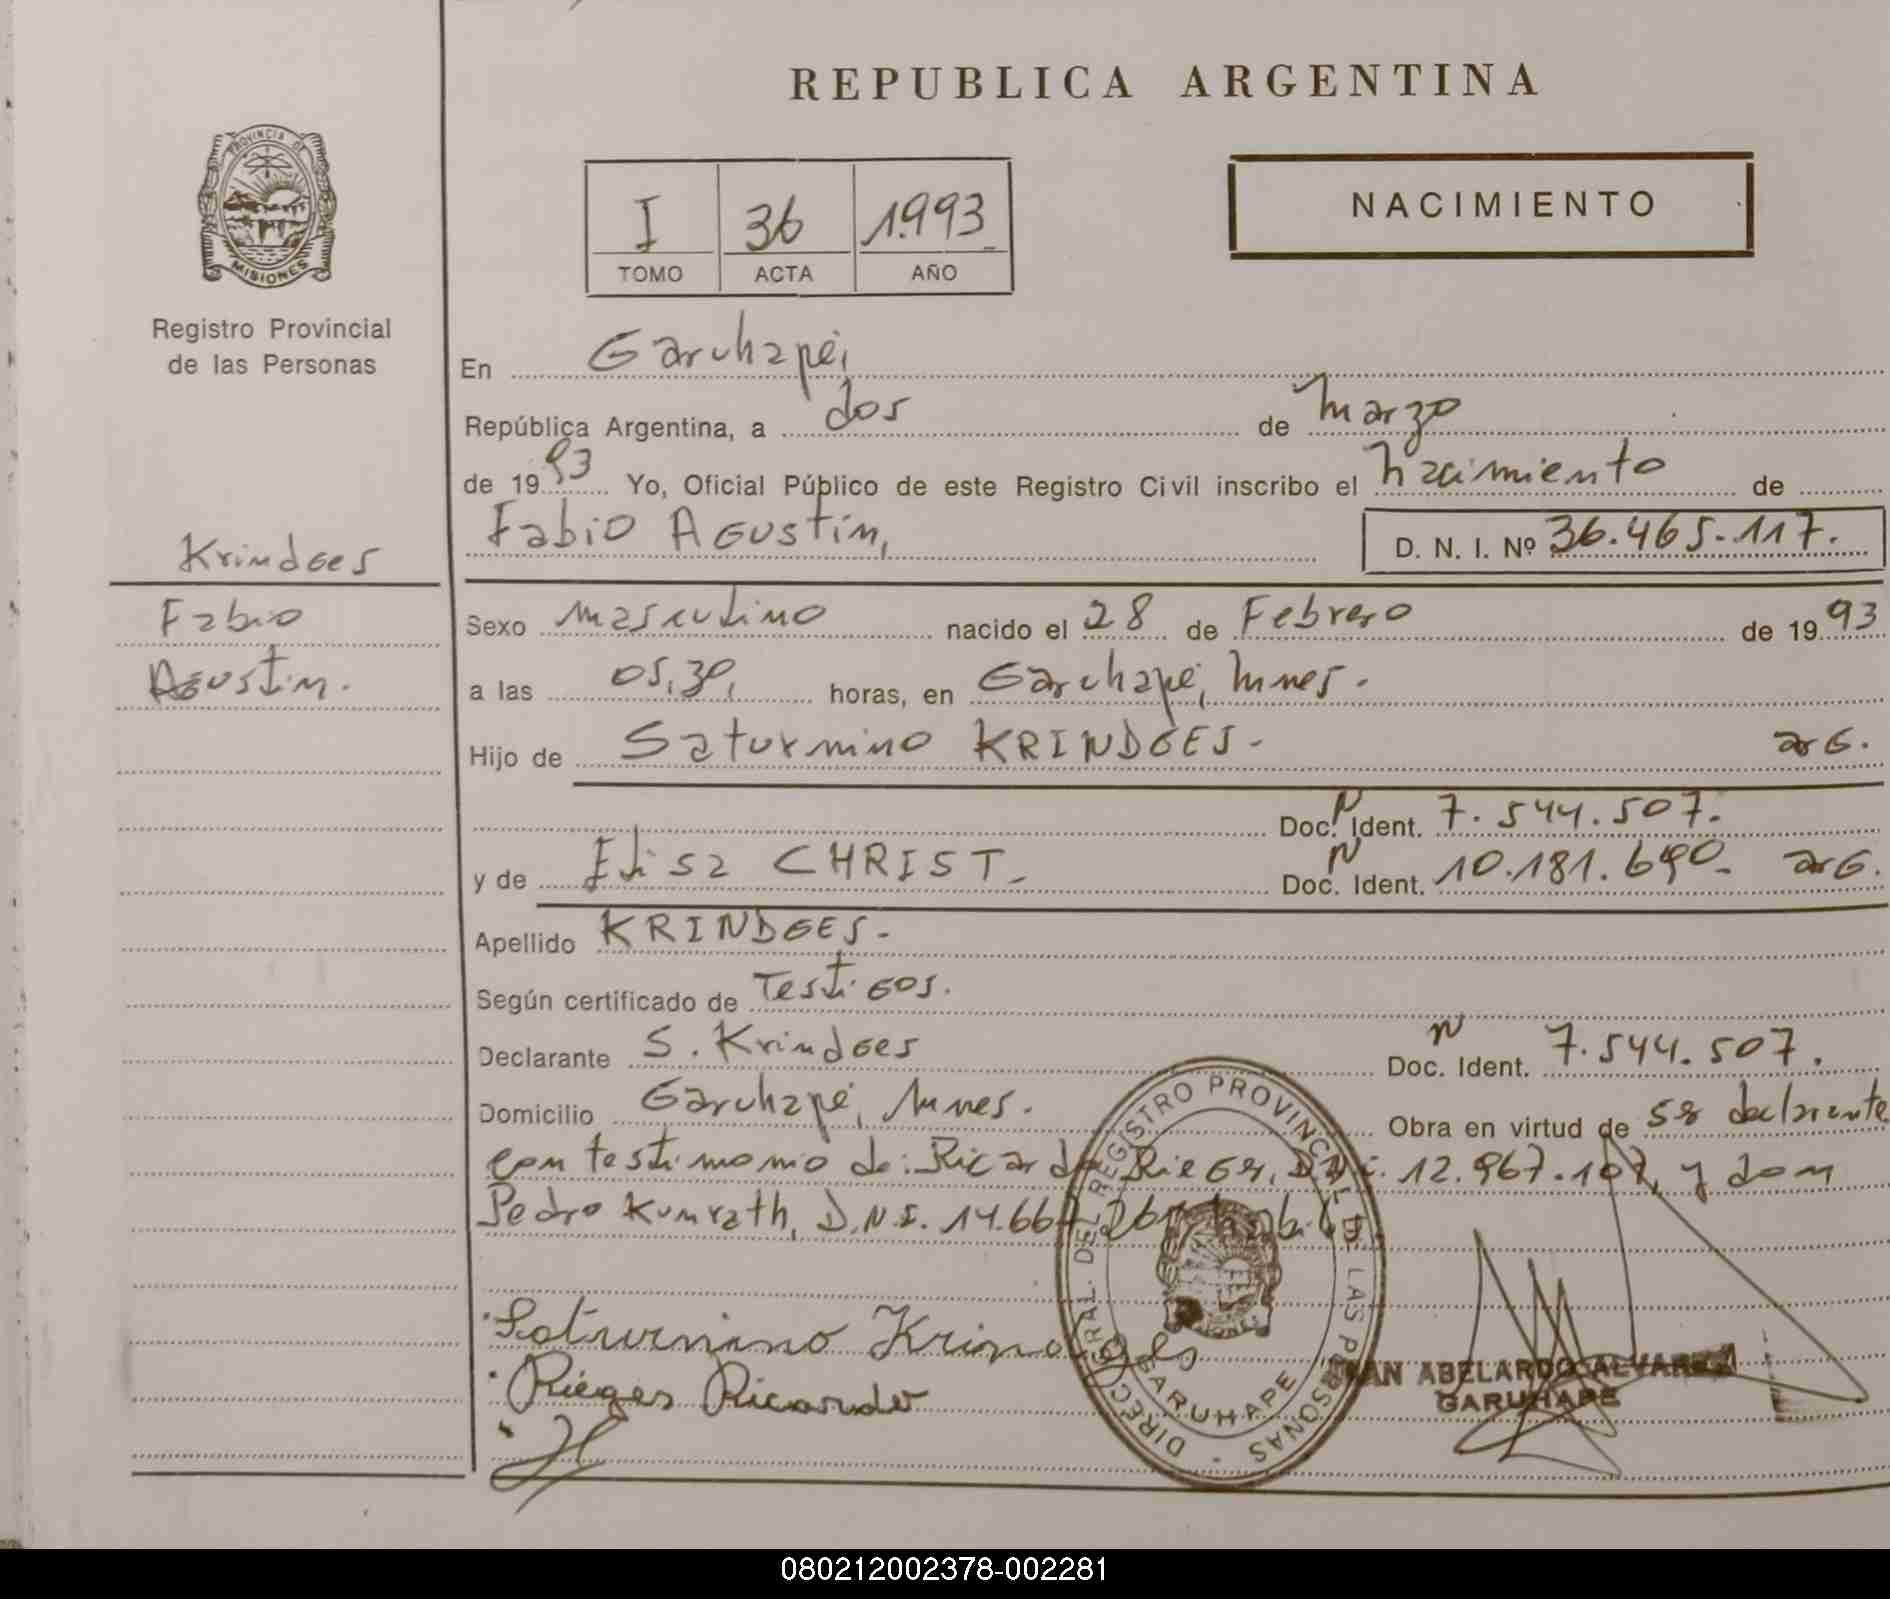 REPUBLICA ARGENTINA
PROVINCIA DE
MISIONES
Registro Provincial
de las Personas
I 36 1.993
TOMO ACTA AÑO
NACIMIENTO
En Garuhapé,
República Argentina, a dos de Marzo
de 1993 Yo, Oficial Público de este Registro Civil inscribo el nacimiento de
Fabio Agustin,
D. N. I. Nº 36.465.117.
Krindges
Fabio
Agustin.
Sexo masculino nacido el 28 de Febrero de 1993
a las 05,30, horas, en Garuhapé, Mnes.
Hijo de Saturnino KRINDGES- arg.
Doc. Ident. N 7.544.507.
y de Elisa CHRIST- Doc. Ident. N 10.181.690- arg.
Apellido KRINDGES-
Según certificado de Testigos.
Declarante S. Krindges Doc. Ident. N 7.544.507.
Domicilio Garuhapé, Mnes. Obra en virtud de ser declarante
con testimonio de: Ricardo Rieger, D.N.I. 12.967.107, y don
Pedro Kunrath, D.N.I. 14.667
DIREC. GRAL. DEL REGISTRO PROVINCIAL DE LAS PERSONAS -
GARUHAPE
Saturnino Krindges
Rieger Ricardo
JUAN ABELARDO ALVAREZ
GARUHAPE
080212002378-002281